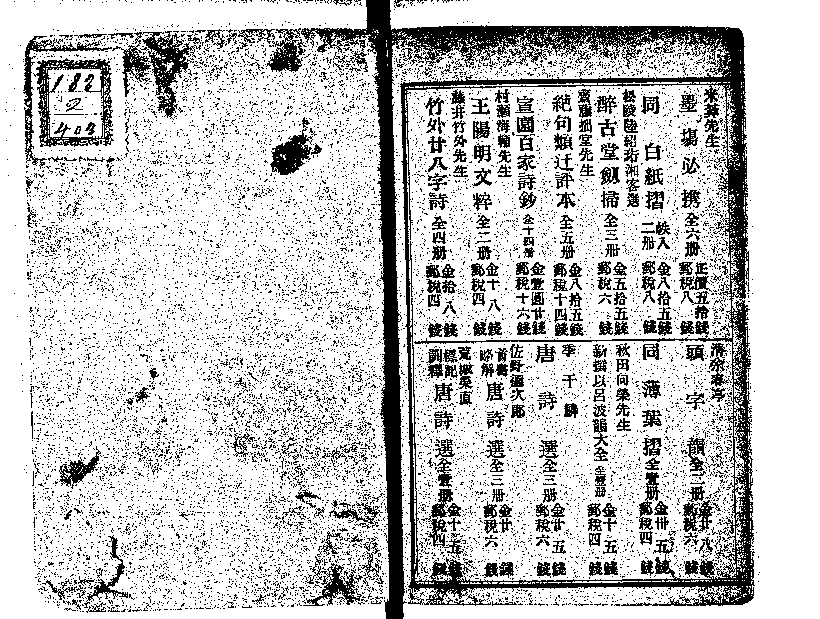 182
2
403
先生
墨場必携 全六册 正價五拾錢 郵税八錢
同 白紙摺 帙入二册 金八拾五錢 郵税八錢
松陵陸紹珩湘客選
醉古堂劔掃 全三册 金五拾五錢 郵税六錢
齋藤拙堂先生
絶句類迂評本 全五册 金八拾五錢 郵税十四錢
宣園百家詩鈔 全十四册 金壹圓廿錢 郵税十六錢
村瀬海輔先生
王陽明文粹 全二册 金十八錢 郵税四錢
藤井竹外先生
竹外廿八字詩 全四册 金拾八錢 郵税四錢
頭字韻 全二册 金廿八錢 郵税六錢
同 薄葉摺 全壹册 金卅五錢 郵税四錢
秋田向榮先生
新撰以呂波韻大全 全壹册 金十五錢 郵税四錢
李于鱗
唐詩選 全三册 金廿五錢 郵税六錢
佐野彌次郎
首書略解 唐詩選 全三册 金廿錢 郵税六錢
唐詩選 全壹册 金十五錢 郵税四錢